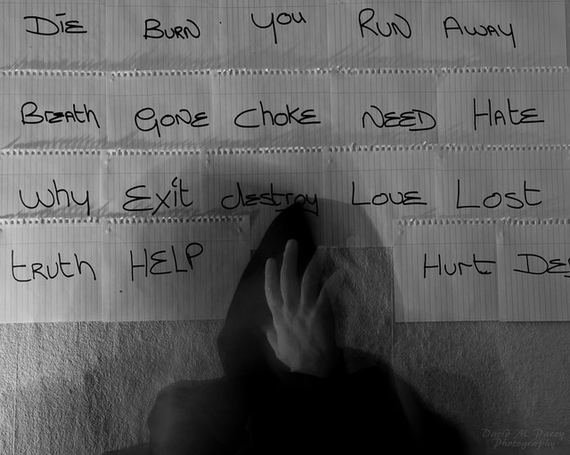 DIE BURN You RUN AWAY
BREATh GONE ChoKE NEED HATE
Why Exit destroy LOVE Lost
tRuth HELP Hurt DES
David M. Tracey
Photography